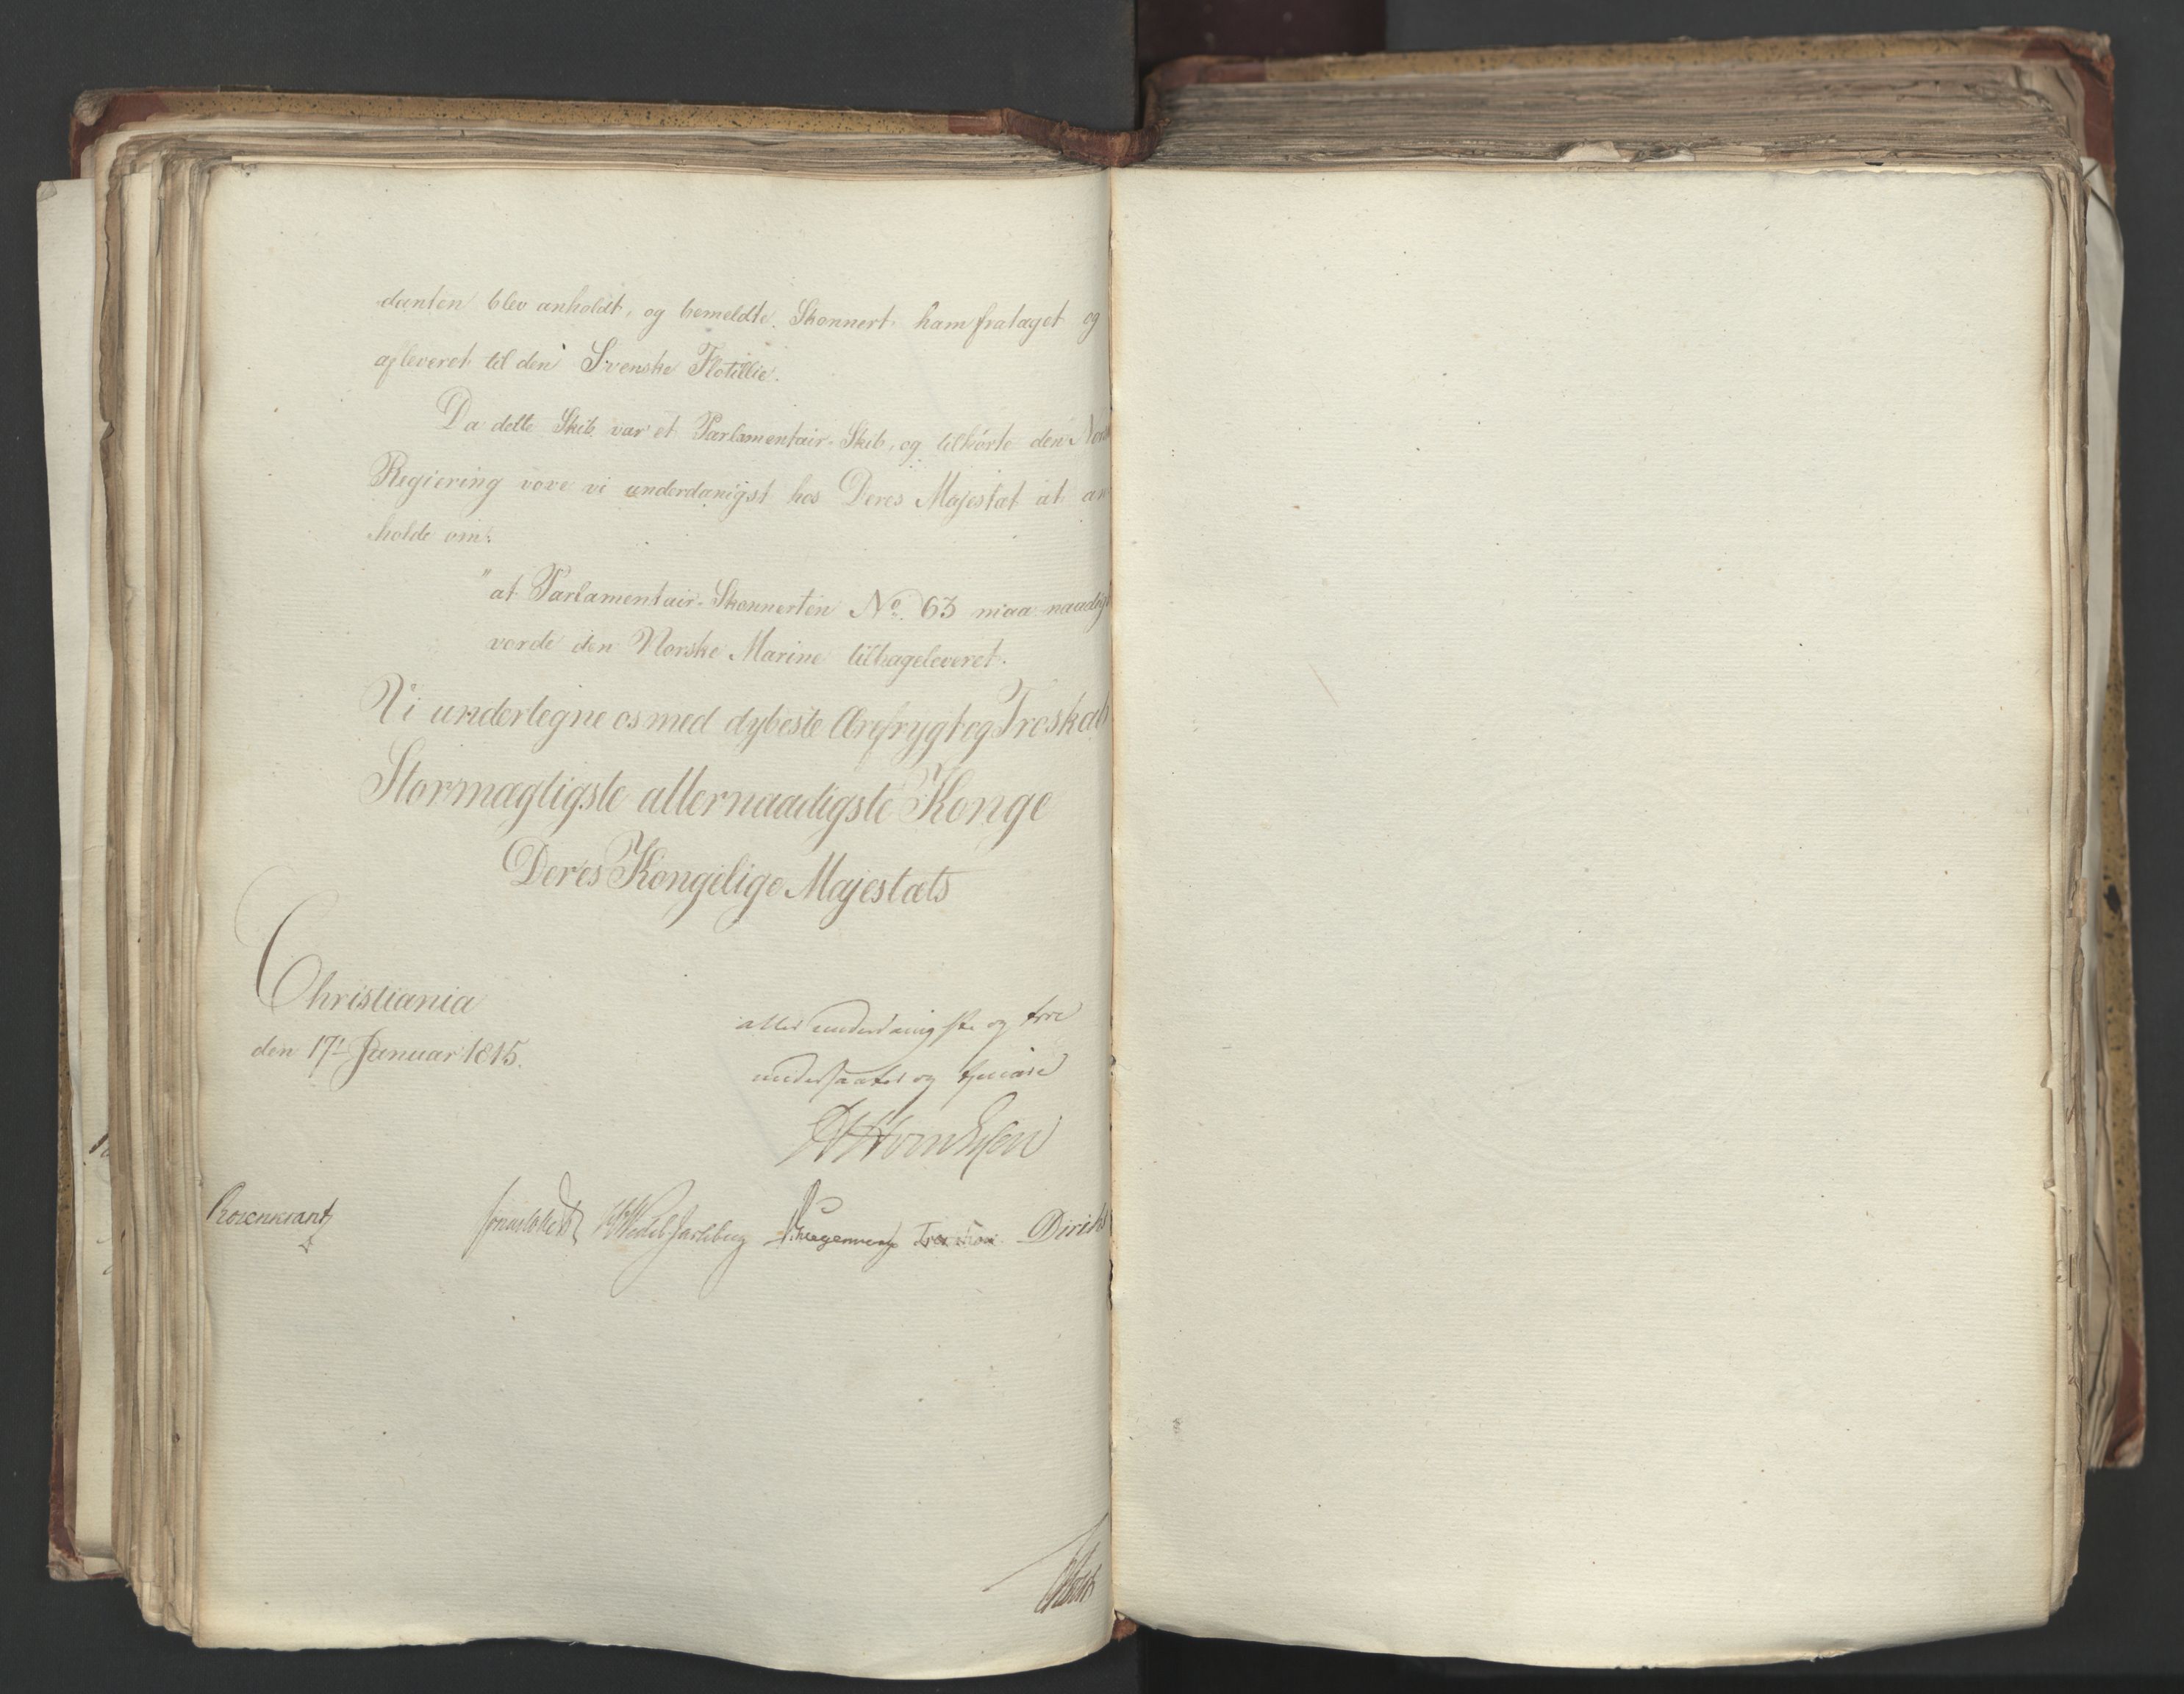 danten blev anholdt, og bemeldte Skonnert ham frataget og
afleveret til den Svenske Flotillie.
Da dette Skib var et Parlamentair-Skib, og tilhörte den Norske
Regiering vove vi underdanigst hos Deres Majestæt at an-
holde om:
"at Parlamentair-Skonnerten No. 63 maa naadigst
vorde den Norske Marine tilbageleveret.
Vi undertegne os med dybeste Ærefrygt og Troskab
Stormægtigste allernaadigste Konge
Deres Kongelige Majestæts
Christiania
den 17de Januar 1815.
allerunderdanigste og troe
undersaatter og tjenere
Rosenkrantz
Sommerhielm HWedel Jarlsberg Treschow Diriks